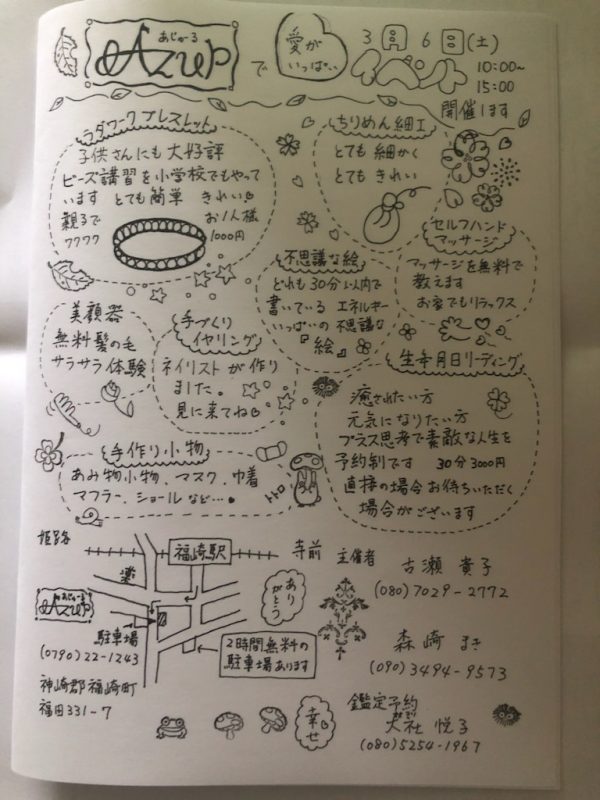 あじゅーる
AZUR で
愛が
いっぱい
3月6日(土)
イベント
10:00~
15:00
開催します
ラダワーク ブレスレット
子供さんにも 大好評
ビーズ講習を小学校でもやって
います とても簡単 きれい
親子で
ワクワク
お1人様
1000円
ちりめん細工
とても 細かく
とても きれい
セルフハンド
マッサージ
マッサージを無料で
教えます
お家でもリラックス
不思議な絵
どれも30分以内で
書いている エネルギー
いっぱいの 不思議な
『絵』
美顔器
無料髪の毛
サラサラ体験
手づくり
イヤリング
ネイリストが作り
ました。
見に来てね
生年月日リーディング
癒されたい方
元気になりたい方
プラス思考で素敵な人生を
予約制です 30分3000円
直接の場合お待ちいただく
場合がございます
手作り小物
あみ物小物、マスク、巾着
マフラー、ショールなど…
トトロ
姫路
福崎駅
寺前
あじゅーる
AZUR
駐車場
(0790)22-1243
神崎郡福崎町
福田331-7
あり
がとう
2時間無料の
駐車場あります
幸せ
主催者
古瀬 貴子
(080)7029-2772
森崎 まき
(090)3494-9573
鑑定予約
大社 悦子
(080)5254-1967